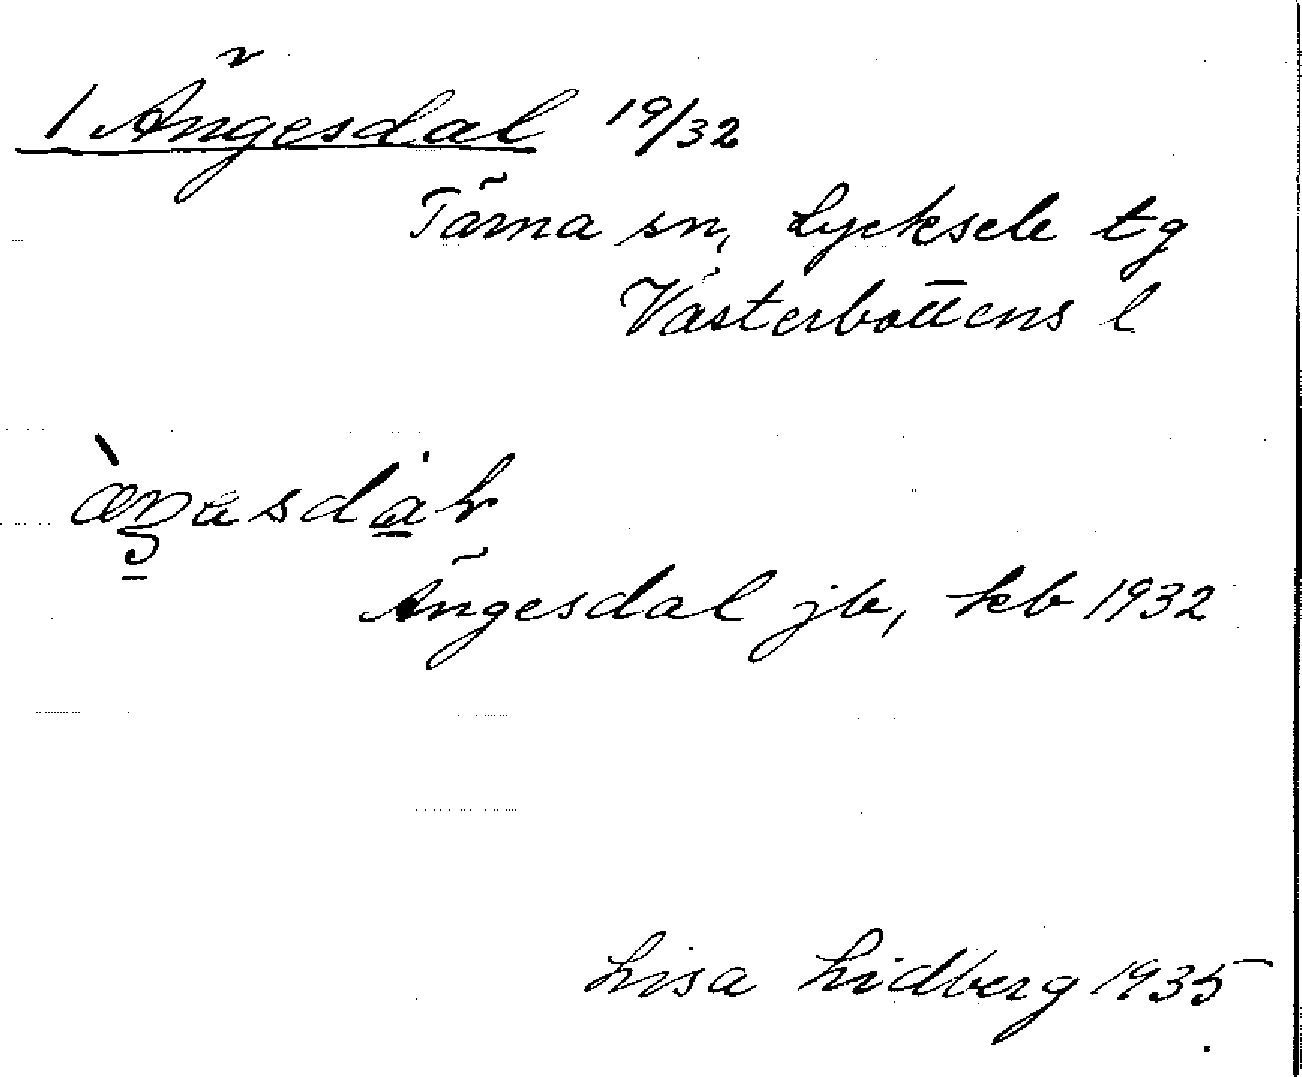 1 Ängesdal 19/32
Tärna sn, Lycksele tg
Västerbottens l
Ängesdal jb, kb 1932
Lisa Lidberg 1935